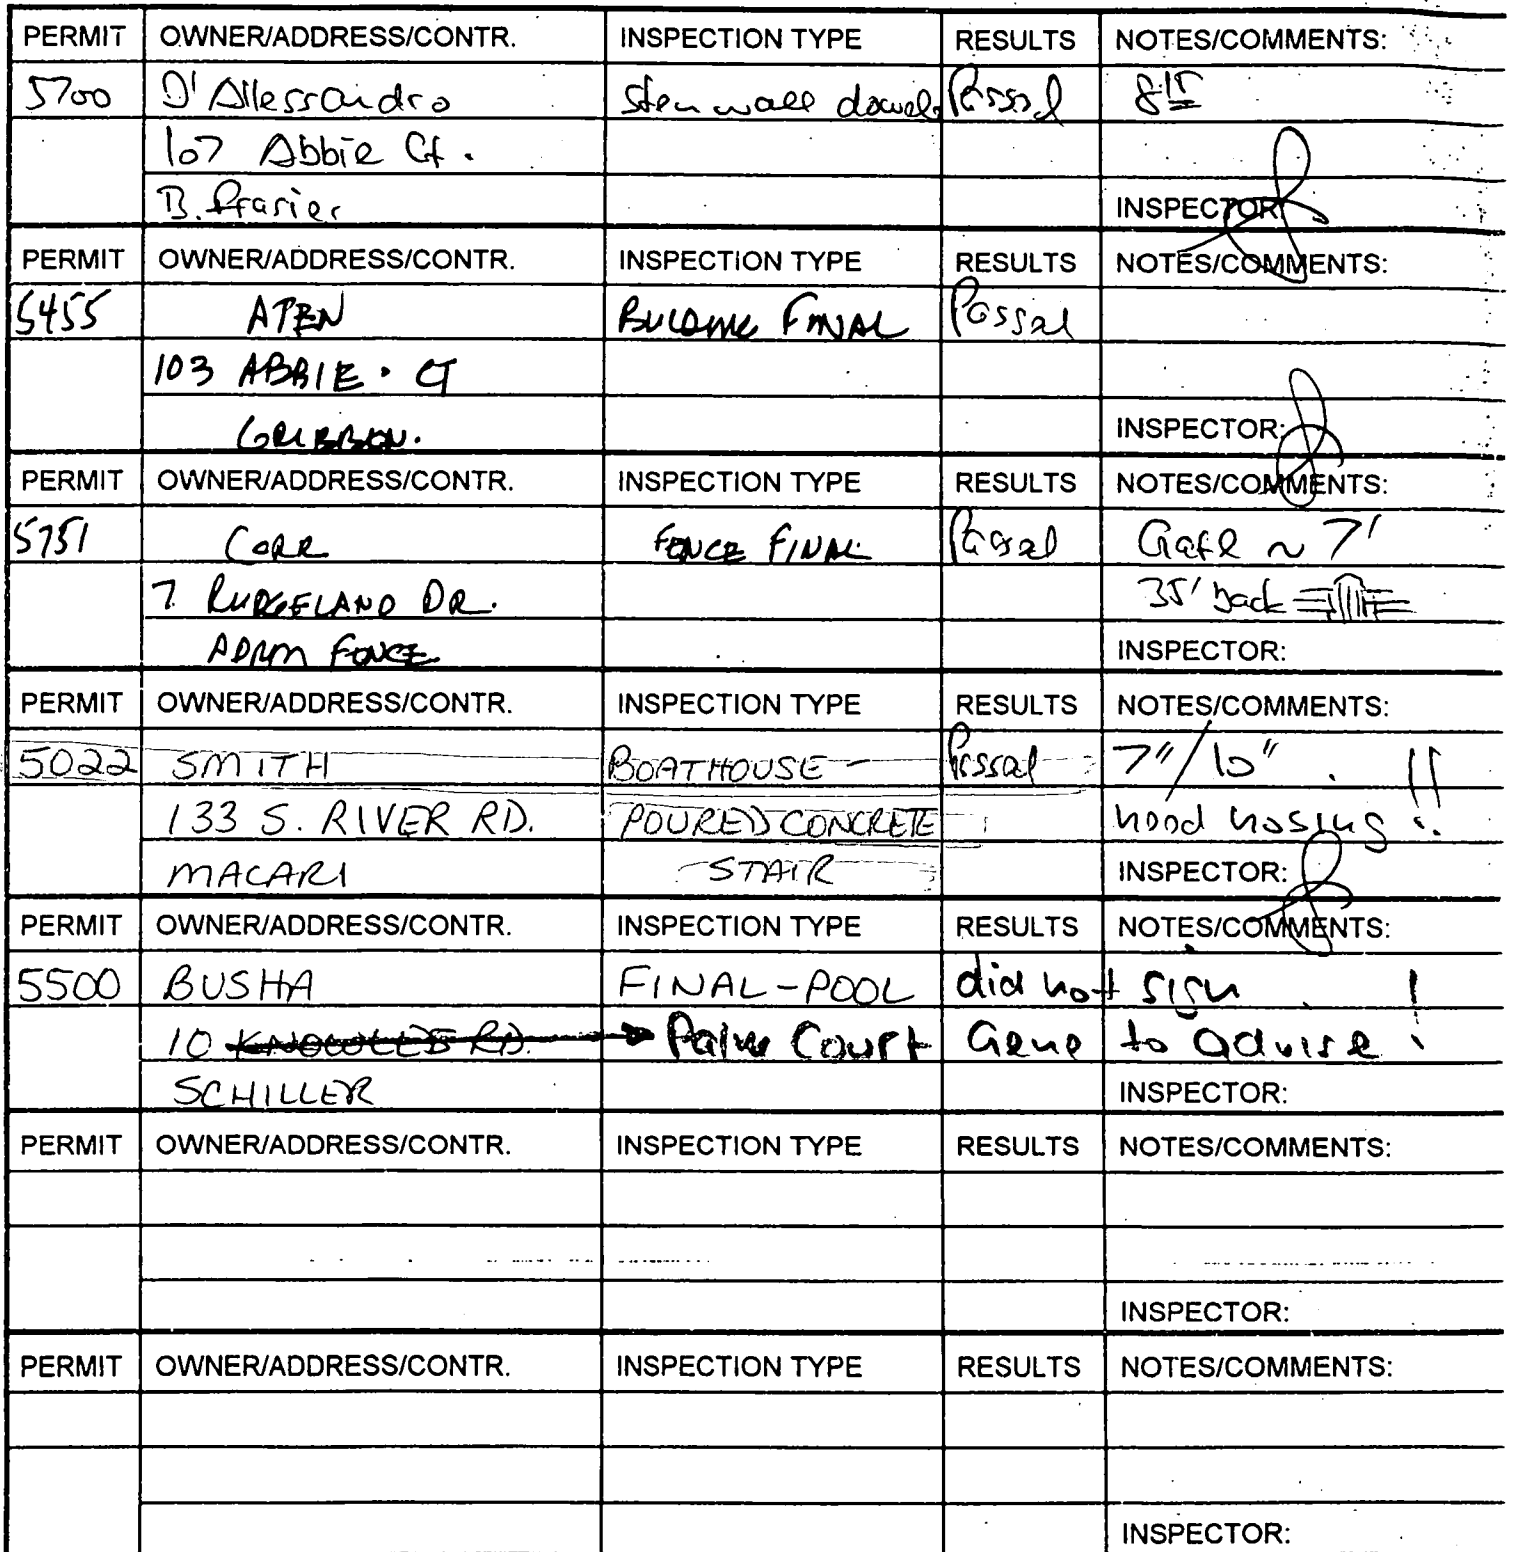 PERMIT OWNER/ADDRESS/CONTR. INSPECTION TYPE RESULTS NOTES/COMMENTS:
5700 D'Allessandro stem wall dowels Passed 8 15
107 Abbie Ct.
B. Frasier INSPECTOR
PERMIT OWNER/ADDRESS/CONTR. INSPECTION TYPE RESULTS NOTES/COMMENTS:
5455 ATEN BUILDING FINAL Passed
103 ABBIE. CT
GRIBBEN. INSPECTOR:
PERMIT OWNER/ADDRESS/CONTR. INSPECTION TYPE RESULTS NOTES/COMMENTS:
5751 CORR FENCE FINAL Passed Gate ~ 7'
7 RIDGELAND DR. 35' back
FENCE INSPECTOR:
PERMIT OWNER/ADDRESS/CONTR. INSPECTION TYPE RESULTS NOTES/COMMENTS:
5022 SMITH BOATHOUSE - Passed 7"/10"
133 S. RIVER RD. POURED CONCRETE need nosing !!
MACARI STAIR INSPECTOR:
PERMIT OWNER/ADDRESS/CONTR. INSPECTION TYPE RESULTS NOTES/COMMENTS:
5500 BUSHA FINAL-POOL did not sign
10 KNOWLES RD. Palm Court Gene to advise !
SCHILLER INSPECTOR:
PERMIT OWNER/ADDRESS/CONTR. INSPECTION TYPE RESULTS NOTES/COMMENTS:
INSPECTOR:
PERMIT OWNER/ADDRESS/CONTR. INSPECTION TYPE RESULTS NOTES/COMMENTS:
INSPECTOR: